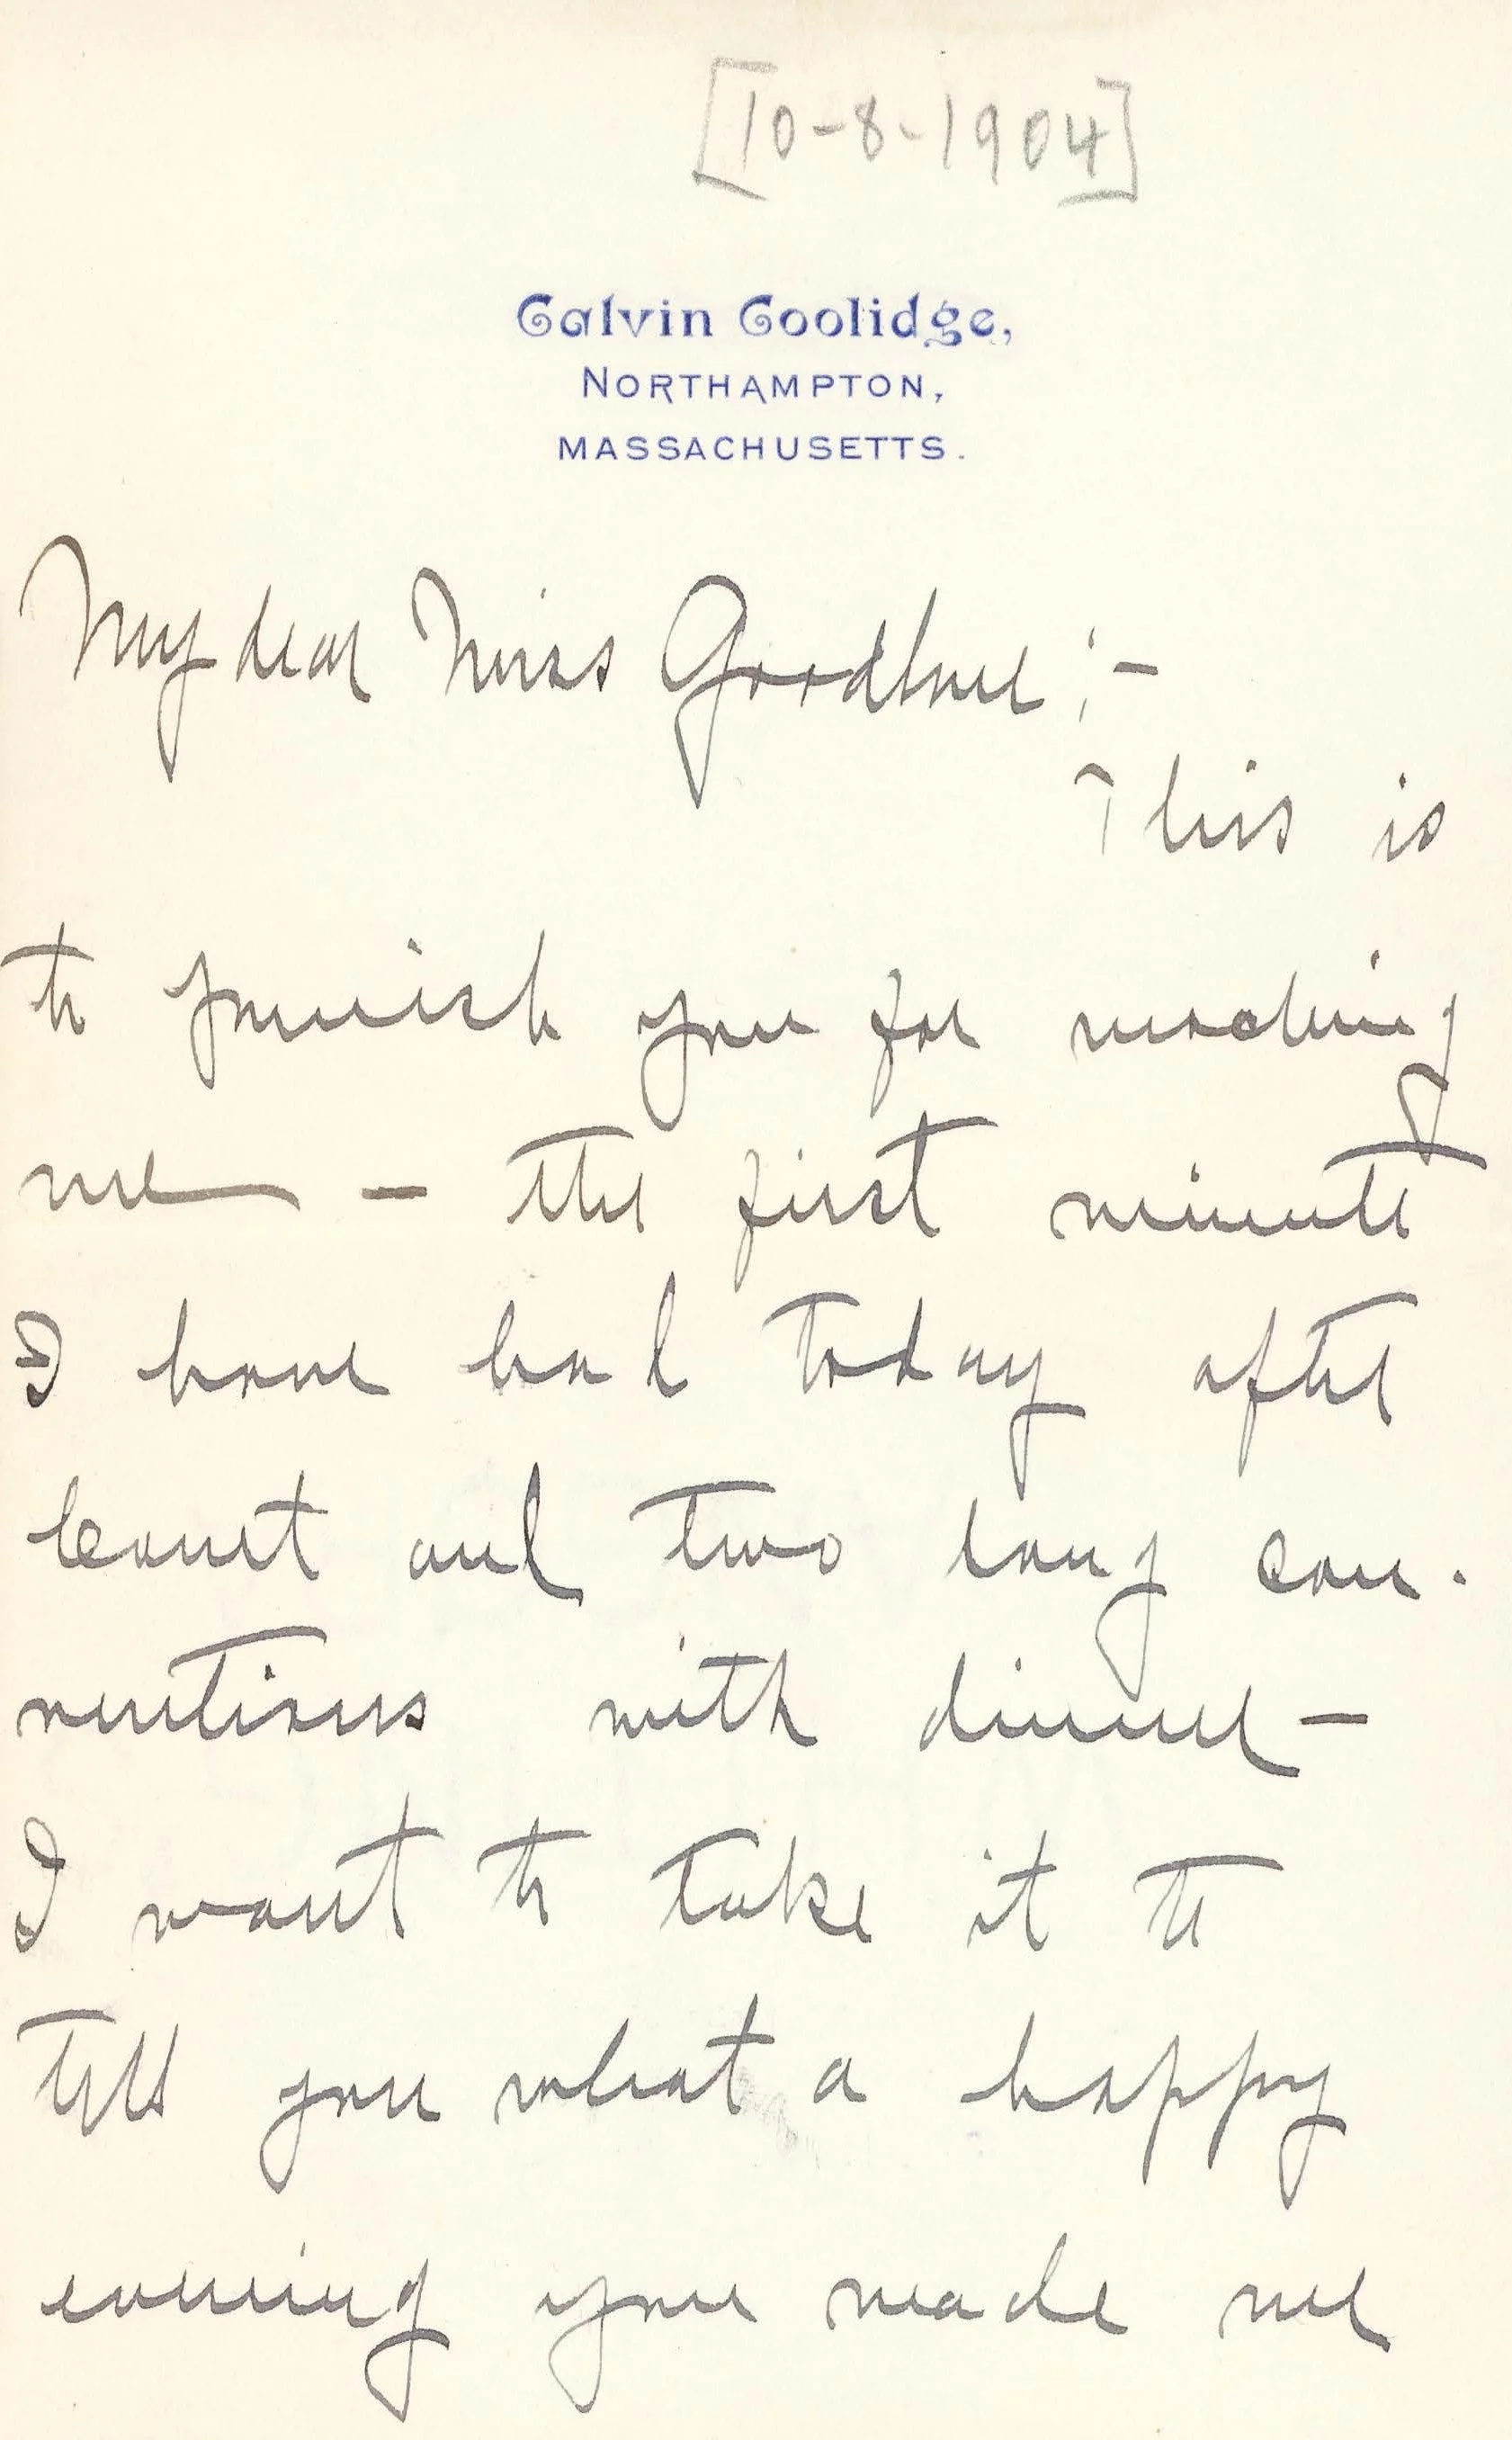 [10-8-1904]
Calvin Coolidge,
NORTHAMPTON,
MASSACHUSETTS.
My dear Miss Goodhue:-
This is
to punish you for mocking
me - the first minute
I have had today after
Court and two long con-
ventions with dinner -
I want to take it to
tell you what a happy
evening you made me